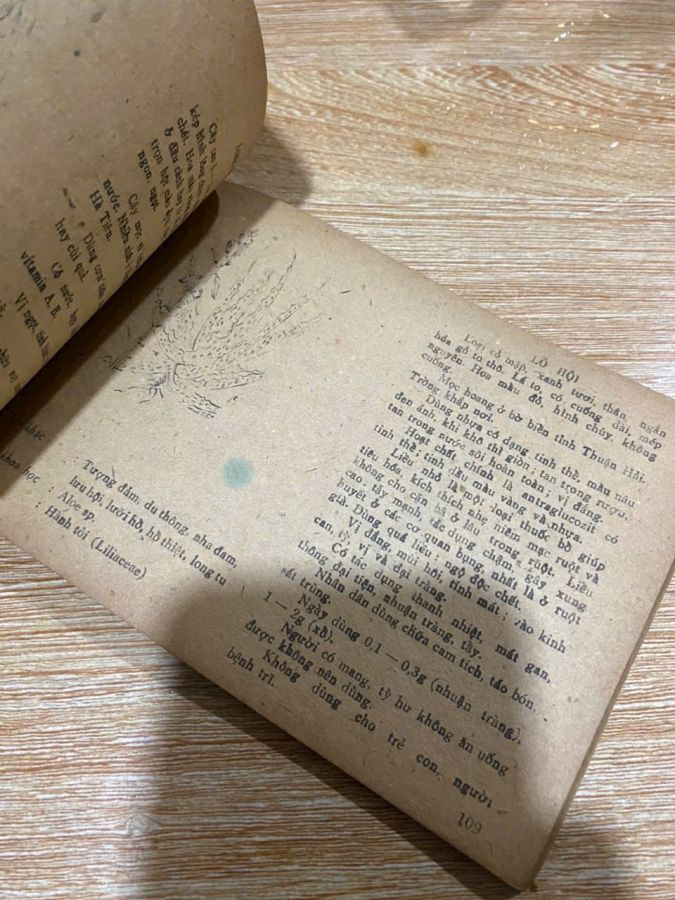 Cây cao
kép hình lông
chét. Hoa màu
ở đầu cành hay
trọn hột màu
ngon, ngọt.
Cây mọc
nước. Nhiều
Hà Tiên.
Dùng cơm
hay cùi quả.
Có nước,
vitamin A, B,
Vị ngọt, tính
khác
khoa học
Tượng đảm, du thông, nha đam,
lưu hội, lưỡi hổ, hổ thiệt, long tu
: Aloe sp.
: Hành tỏi (Liliaceae)
LÔ HỘI
Loại cỏ mập, xanh tươi, thân, ngắn
hóa gỗ to thô. Lá to, có cuống dài, mép
nguyên. Hoa màu đỏ, hình chùy, không
cuống.
Mọc hoang ở bờ biển tỉnh Thuận Hải.
Trồng khắp nơi.
Dùng nhựa có dạng tinh thể, màu nâu
đen ánh, khi khô thì giòn; tan trong rượu,
tan trong nước sôi hoàn toàn; vị đắng.
Hoạt chất chính là antraglucozit có
tinh thể; tinh dầu màu vàng và nhựa.
Liều nhỏ là một loại thuốc bổ giúp
tiêu hóa, kích thích nhẹ niêm mạc ruột và
không cho cặn bã ở lâu trong ruột. Liều
cao, tẩy mạnh tác dụng chậm, gây xung
huyết ở các cơ quan bụng, nhất là ở ruột
già. Dùng quá liều; ngộ độc chết.
Vị đắng, mùi hôi, tính mát; vào kinh
can, tỳ, vị và đại tràng.
Có tác dụng thanh nhiệt, mát gan,
thông đại tiện, nhuận tràng, tẩy,
sát trùng.
Nhân dân dùng chữa cam tích, táo bón.
Ngày dùng 0,1 — 0,3g (nhuận tràng),
1 — 2g (xổ).
Người có mang, tỳ hư không ăn uống
được không nên dùng.
Không dùng cho trẻ con, người
bệnh trĩ.
109